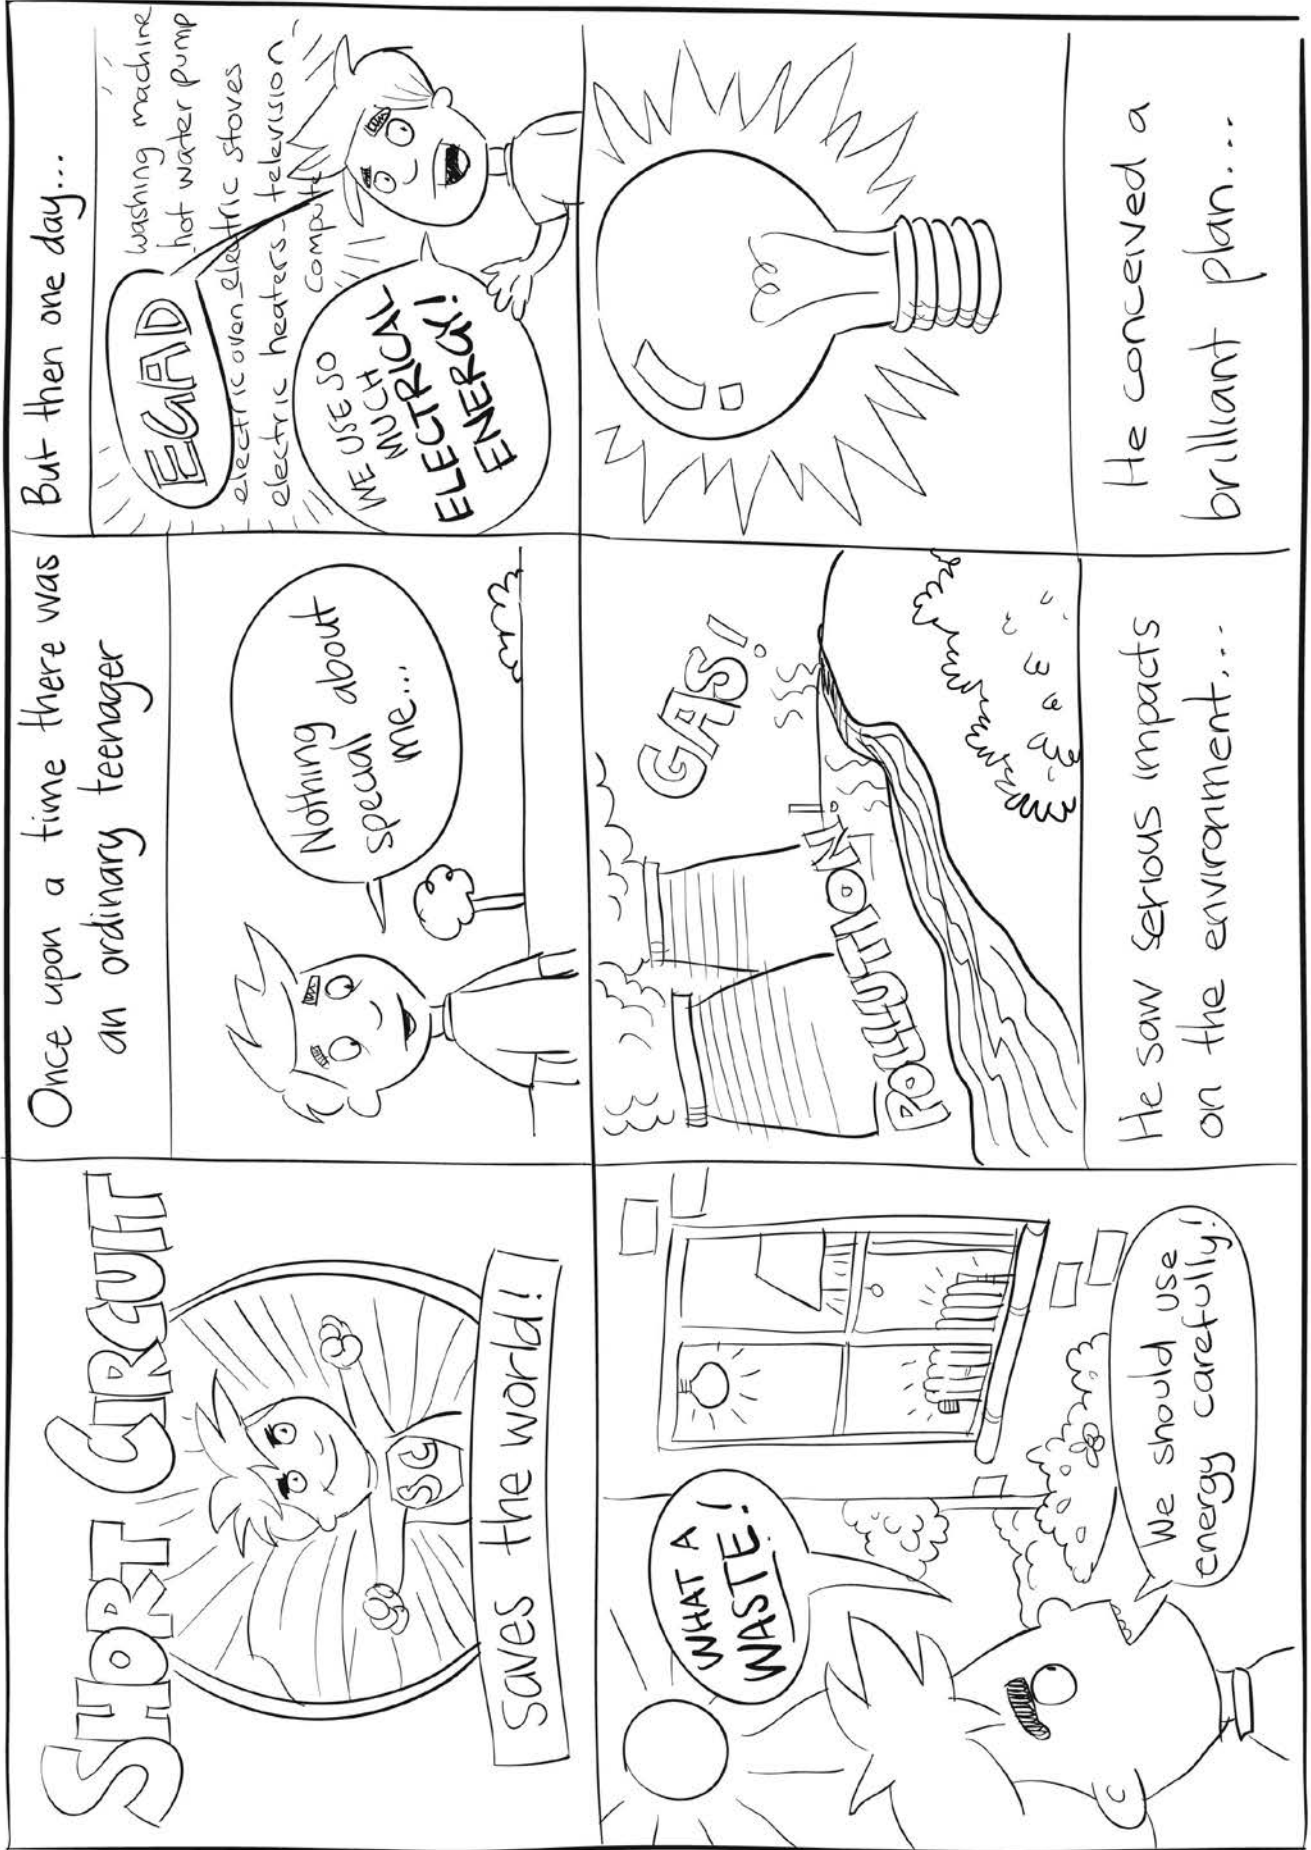 SHORT CIRCUIT
SC
saves the world!
Once upon a time there was
an ordinary teenager
Nothing about
special about
me...
But then one day...
EGAD
washing machine
hot water pump
electric oven electric stoves
electric heaters - television
compute
WE USE SO
MUCH
ELECTRICAL
ENERGY!
WHAT A
WASTE!
We should use
energy carefully!
GAS!
POLLUTION!
He saw serious impacts
on the environment...
He conceived a
brilliant plan...